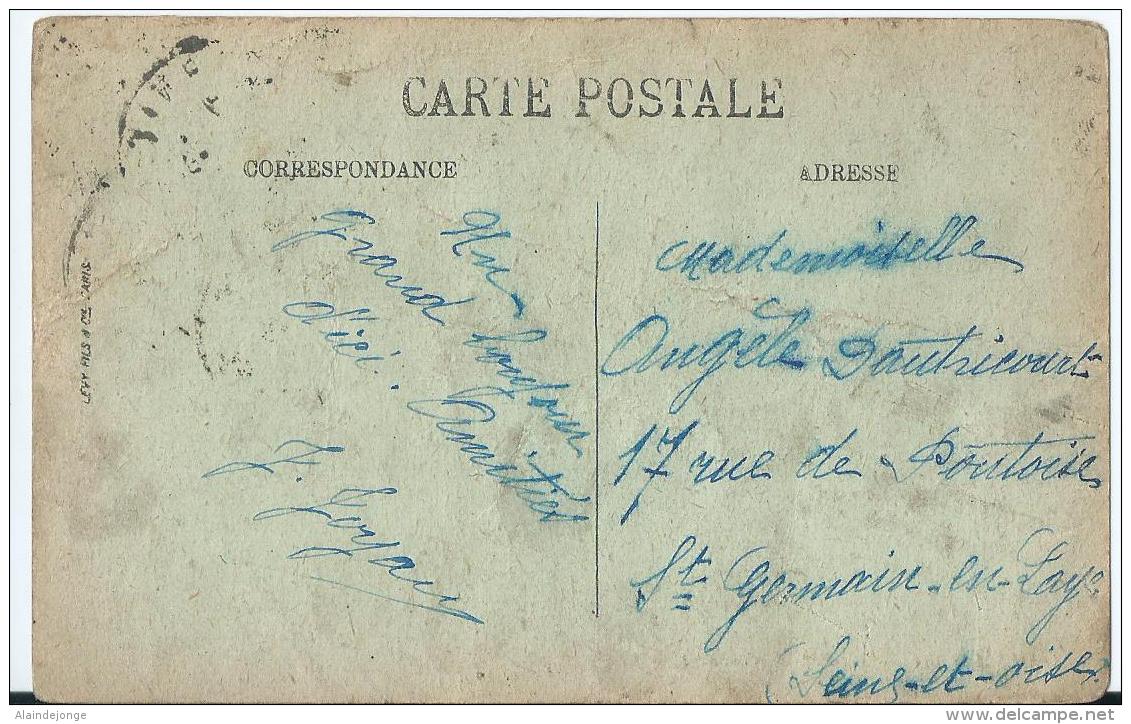 CARTE POSTALE
CORRESPONDANCE
ADRESSE
Un
grand bonjour
d'ici.
Amitiés
Mademoiselle
Angèle Dautricourt
17 rue de Pontoise
St Germain-en-Laye
(Seine-et-oise)
LEVY FILS & Cie PARIS
Alaindejonge
www.delcampe.net